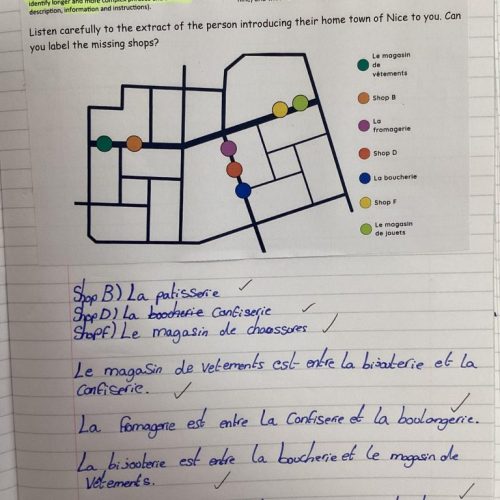 identify longer and more complex phrases
description, information and instructions).
Listen carefully to the extract of the person introducing their home town of Nice to you. Can
you label the missing shops?
Le magasin
de
vêtements
Shop B
La
fromagerie
Shop D
La boucherie
Shop F
Le magasin
de jouets
Shop B) La patisserie
Shop D) La boocherie Confiserie
Shopf) Le magasin de chaossores
Le magasin de vetements est entre la bijooterie et la
Confiserie.
La fromagerie est entre la Confiserie et la boulangerie.
La bijooterie est entre la boucherie et le magasin de
Vetements.